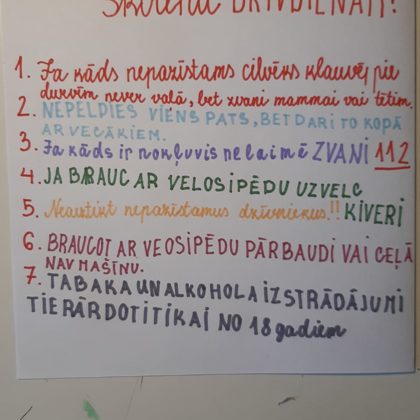 BRĪVDIENĀM!
1. Ja kāds nepazīstams cilvēks klauvē pie
durvīm never vaļā, bet zvani mammai vai tētim.
2. NEPELDIES VIENS PATS, BET DARI TO KOPĀ
AR VECĀKIEM.
3. Ja kāds ir nokļuvis nelaimē ZVANI 112
4. JA BRAUC AR VELOSIPĒDU UZVELC
5. Neaiztikt nepazīstamus dzīvniekus!! ĶIVERI
6. BRAUCOT AR VEOSIPĒDU PĀRBAUDI VAI CEĻĀ
NAV MAŠĪNU.
7. TABAKA UN ALKOHOLA IZSTRĀDĀJUMI
TIE PĀRDOTI TIKAI NO 18 gadiem